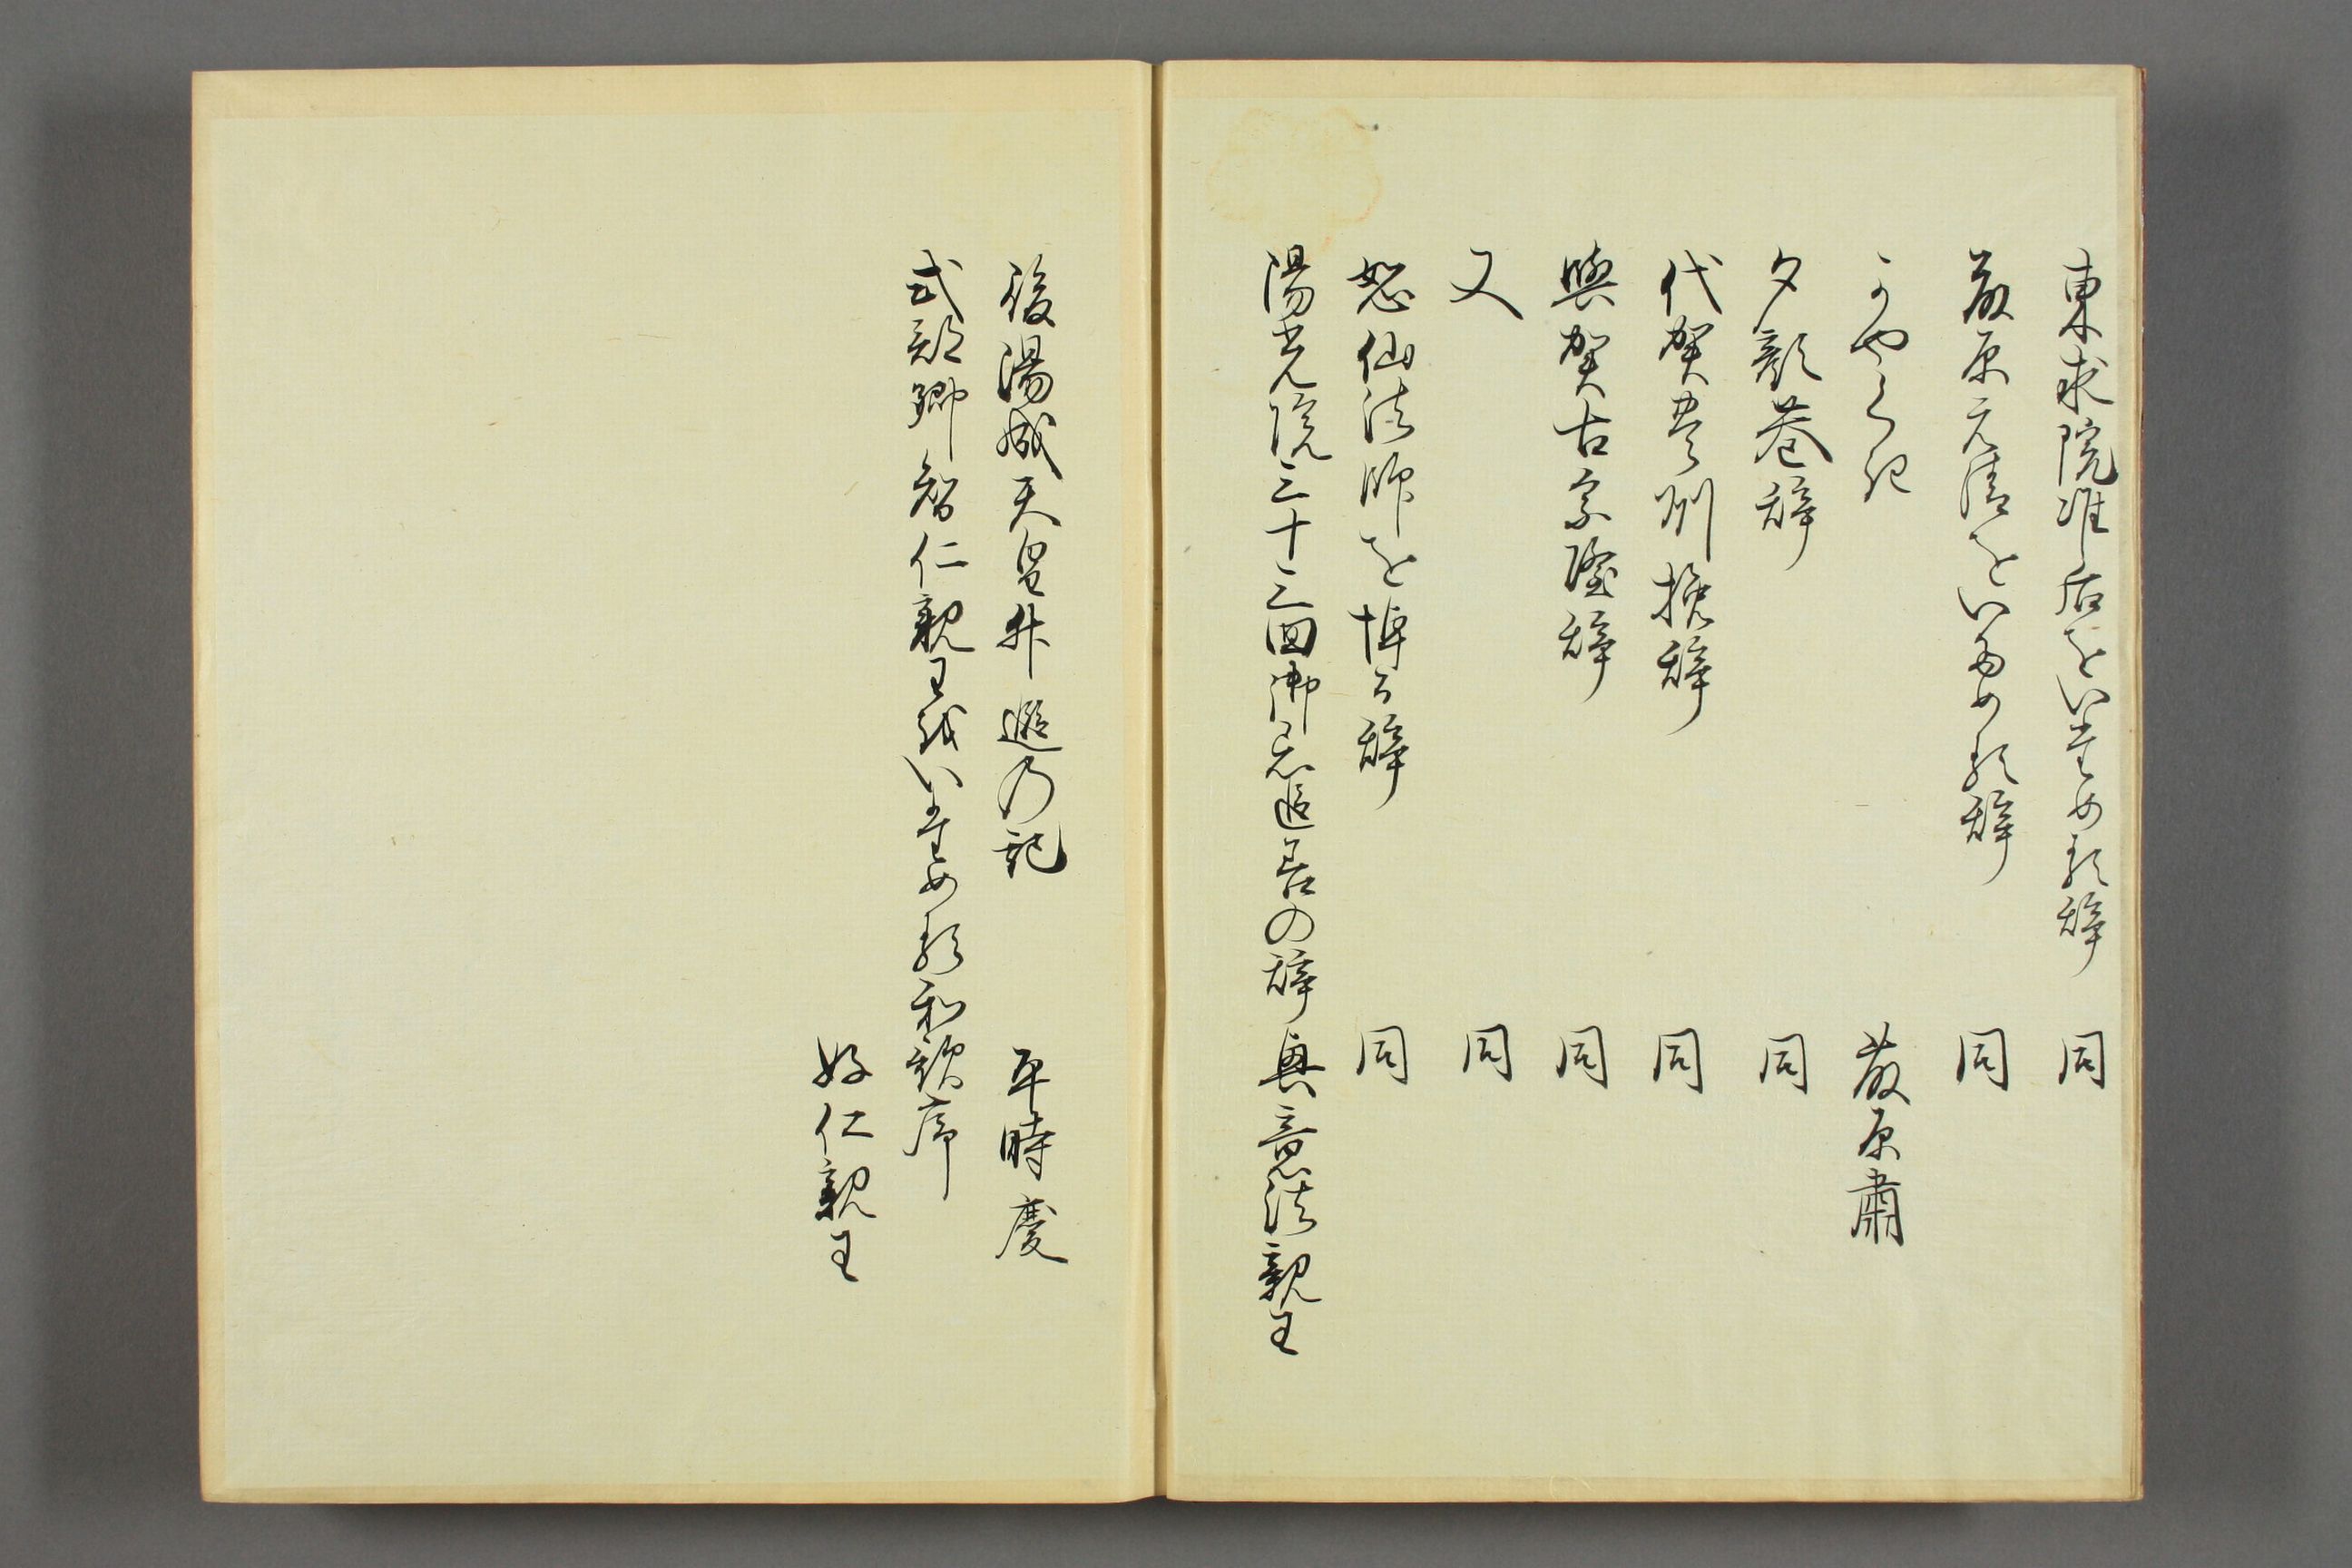 東求院准后をいためる辞 同
藤原元清をいためる辞 同
藤原粛
夕顔巷辞 同
代賀州挽辞 同
與賀古宗隆辞 同
又 同
恕仙法師を悼る辞 同
陽光院三十三回御忌追善の辞 興意法親王
後陽成天皇升遐乃記 平時慶
式部卿智仁親王をいためる和歌序
好仁親王